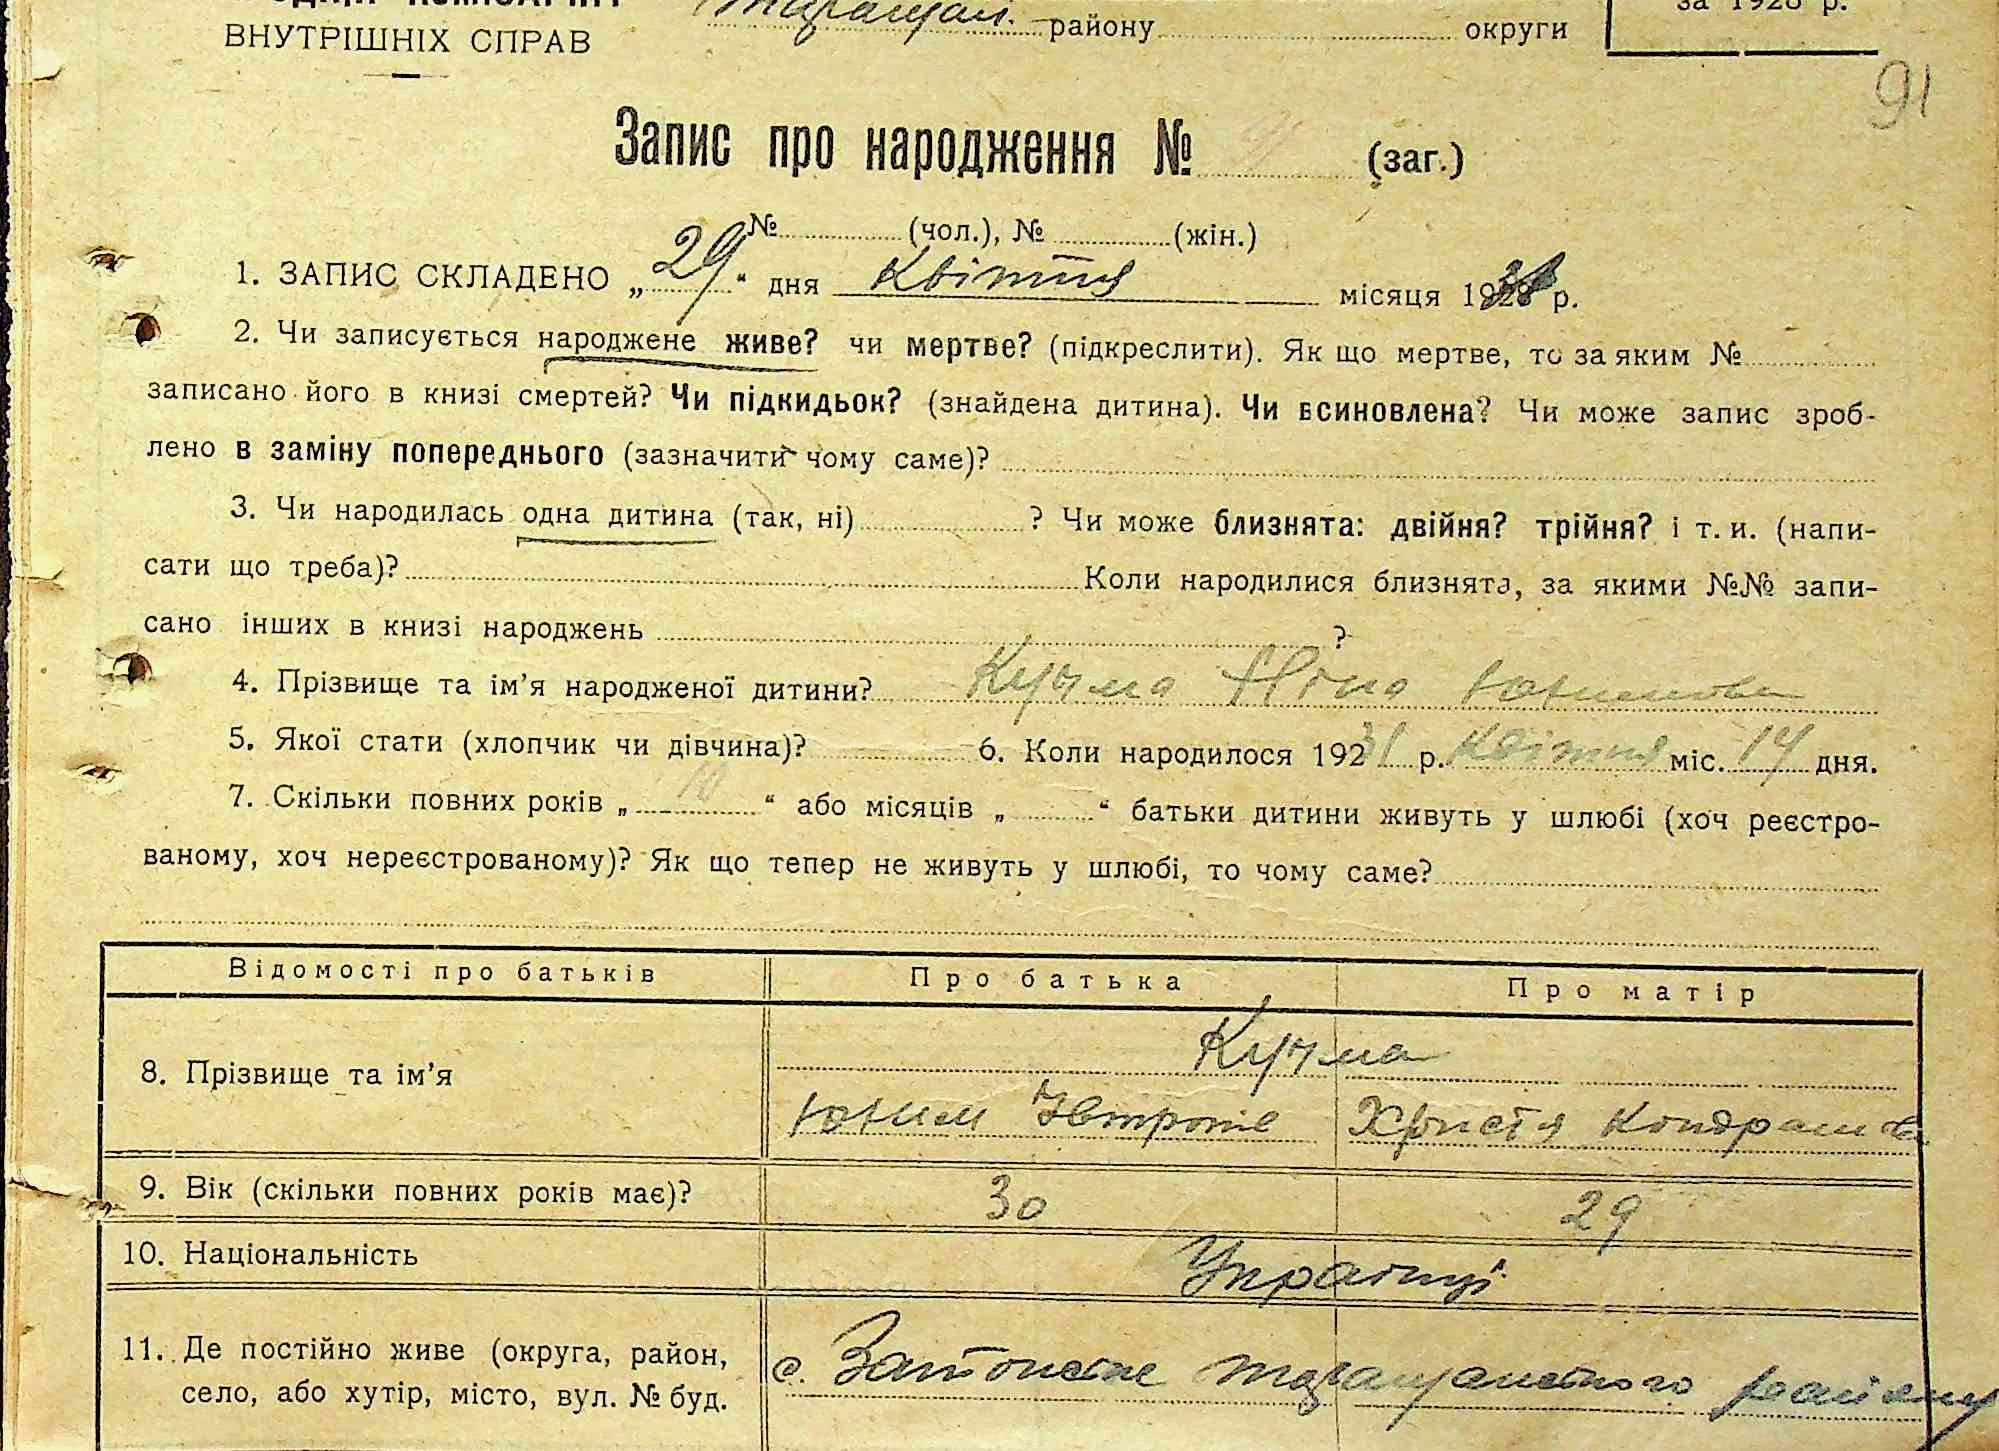 ВНУТРІШНІХ СПРАВ
Таращан. району округи
за 1928 р.
91
Запис про народження № (заг.)
№ (чол.), № (жін.)
1. ЗАПИС СКЛАДЕНО „29“ дня Квітня місяця 19 р.
2. Чи записується народжене живе? чи мертве? (підкреслити). Як що мертве, то за яким №
записано його в книзі смертей? Чи підкидьок? (знайдена дитина). Чи всиновлена? Чи може запис зроб-
лено в заміну попереднього (зазначити чому саме)?
3. Чи народилась одна дитина (так, ні) ? Чи може близнята: двійня? трійня? і т. и. (напи-
сати що треба)? Коли народилися близнята, за якими №№ запи-
сано інших в книзі народжень ?
4. Прізвище та ім'я народженої дитини? Кучма Ніна Юхимова
5. Якої стати (хлопчик чи дівчина)? 6. Коли народилося 1931 р. Квітня міс. 14 дня.
7. Скільки повних років „10“ або місяців „ “ батьки дитини живуть у шлюбі (хоч реєстро-
ваному, хоч нереєстрованому)? Як що тепер не живуть у шлюбі, то чому саме?
Відомості про батьків Про батька Про матір
8. Прізвище та ім'я Кучма
Юхим Христя
9. Вік (скільки повних років має)? 30 29
10. Національність Українці
11. Де постійно живе (округа, район,
село, або хутір, місто, вул. № буд.
с. Таращанського району